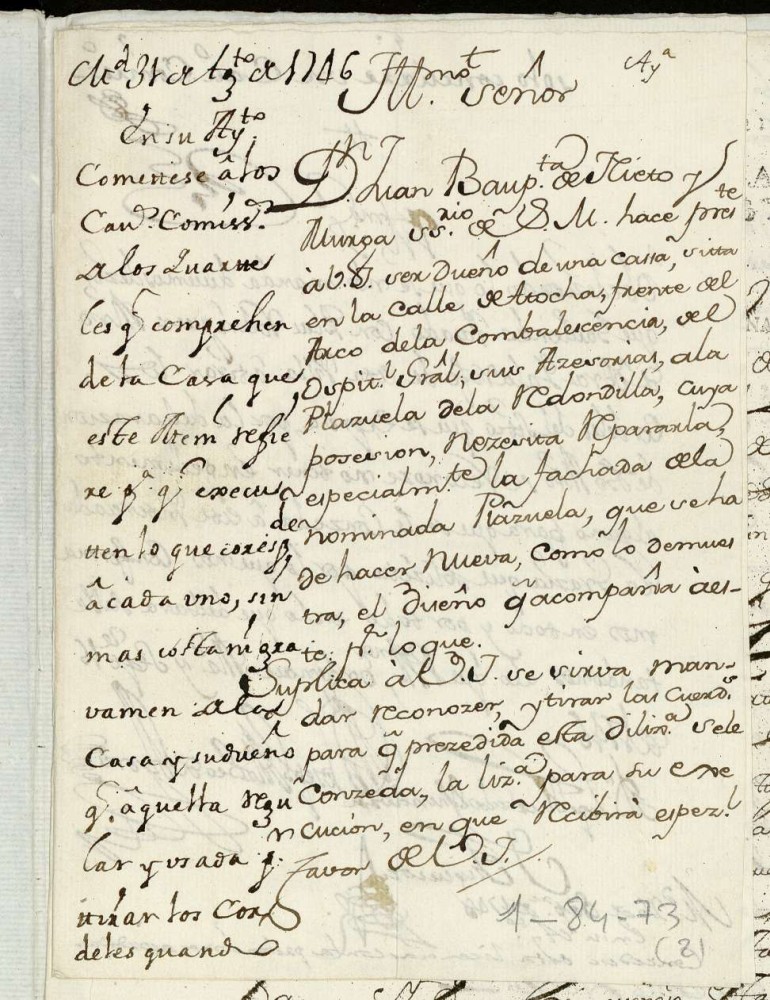 Md 31 de Agto de 1746
En su Ayto.
Comettese â los
Cavs. Comiss.s
de los Quarte
les q̃ comprehen
de la Casa que
este Mem.l refie
re p.a q̃ execu
tten lo que coresp.de
â cada uno, sin
mas costa ni gra
vamen de la
Casa y su dueño
q̃. âquella regu
lar y usada p.
ttirar los Cor
deles quando
Ay.a
Ill.mo Señor
D.n Juan Baup.ta de Nieto y
Murga ss.rio de S. M. hace pres.te
à V.S.I. ser dueño de una cassa, sitta
en la calle de Atocha, frente del
Arco de la Combalescência, del
Ospit.l Grãl, sus Azesorias, a la
Plazuela de la Redondilla, cuya
posesion, nezesita Repararla,
especialm.te la fachada de la
nominada Plazuela, que se ha
de hacer Nueva, como lo demues
tra, el diseño q̃ acompaña à es-
te; p.r lo que.
Suplica à V.S.I. se sirva man-
dar reconozer, y tirar las cuerd.s
para q̃ prezedida esta diliz.a se le
Conzeda, la liz.a para su exe
cución, en que Recibirà espez.l
favor de V.S.I.
1-84-73
(2)